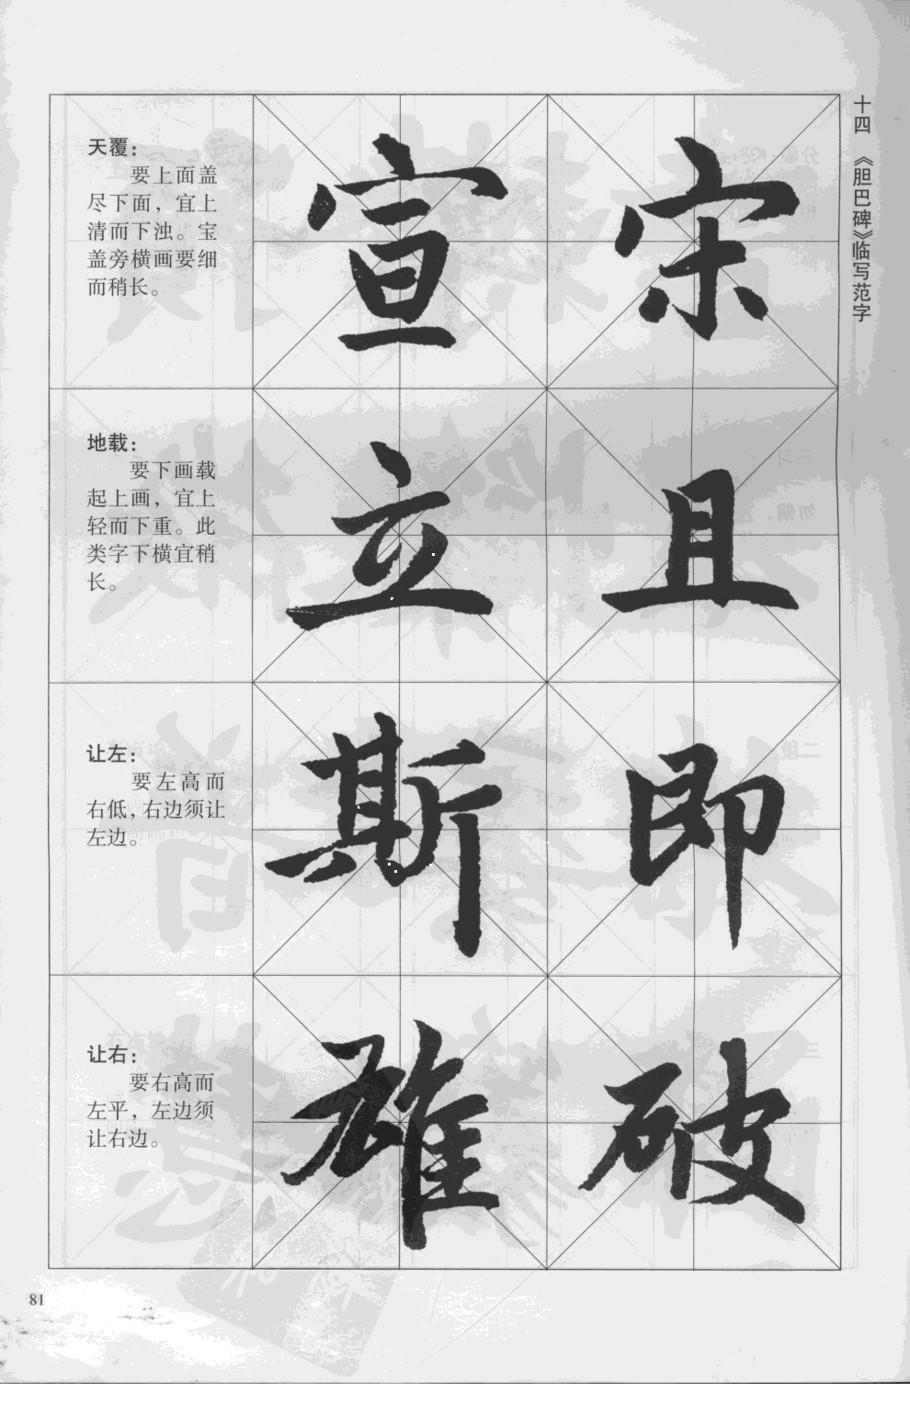 十四 《胆巴碑》临写范字
天覆：
要上面盖
尽下面，宜上
清而下浊。宝
盖旁横画要细
而稍长。
宣 宋
地载：
要下画载
起上画，宜上
轻而下重。此
类字下横宜稍
长。
立 且
让左：
要左高而
右低，右边须让
左边。
斯 即
让右：
要右高而
左平，左边须
让右边。
雄 破
81